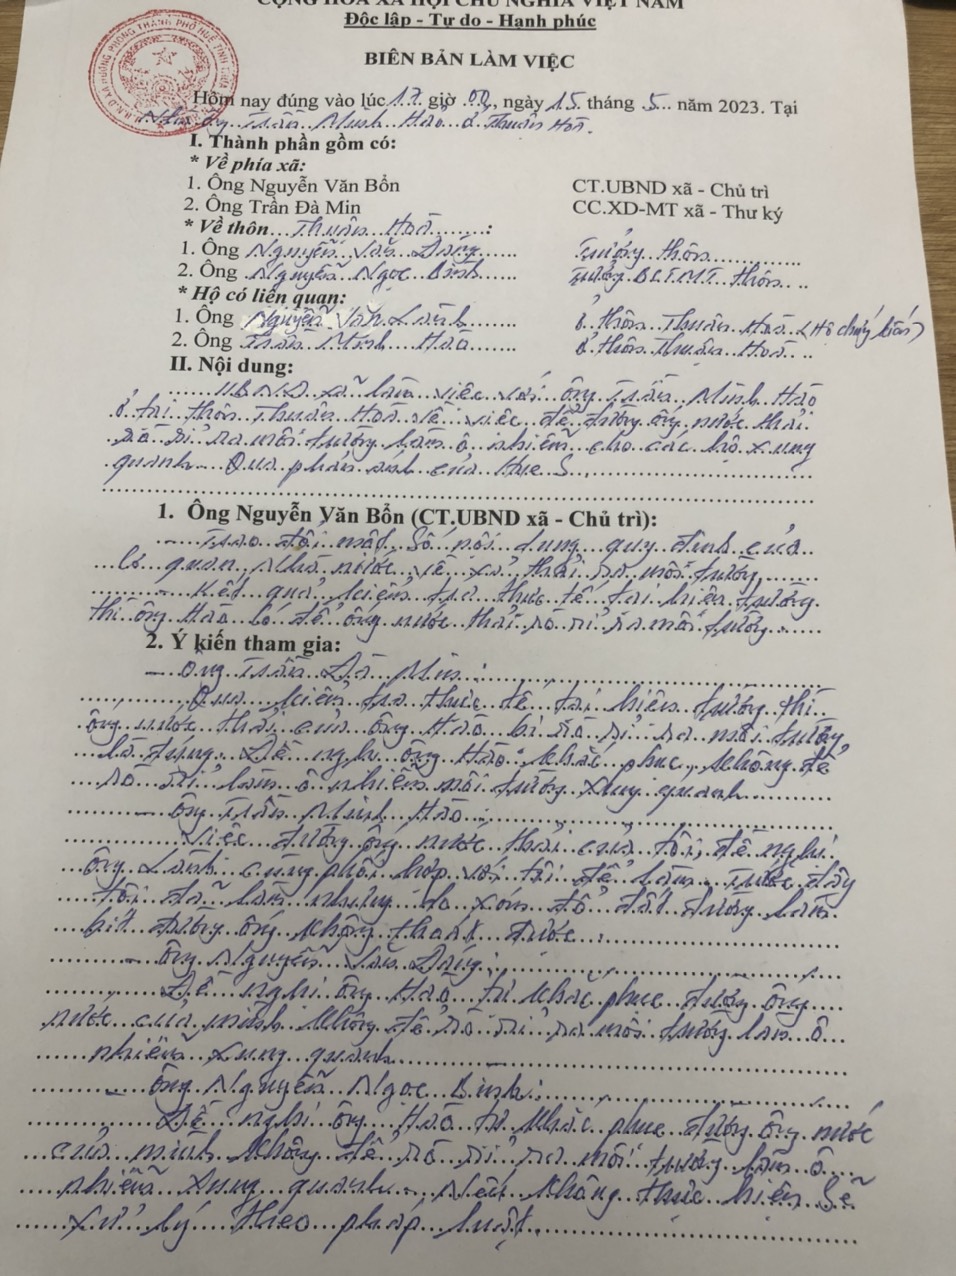 CỘNG HÒA XÃ HỘI CHỦ NGHĨA VIỆT NAM
Độc lập - Tự do - Hạnh phúc
BIÊN BẢN LÀM VIỆC
Hôm nay đúng vào lúc 17 giờ 00, ngày 15 tháng 5 năm 2023. Tại
Nhà ông Trần Minh Hào ở Thuận Hoà.
I. Thành phần gồm có:
* Về phía xã:
1. Ông Nguyễn Văn Bổn CT.UBND xã - Chủ trì
2. Ông Trần Đà Min CC.XD-MT xã - Thư ký
* Về thôn Thuận Hoà:
1. Ông Nguyễn Văn Trưởng thôn
2. Ông Nguyễn Ngọc Bình Trưởng BCTMT thôn
* Hộ có liên quan:
1. Ông Nguyễn Văn Lành ở thôn Thuận Hoà
2. Ông Trần Minh Hào ở thôn Thuận Hoà
II. Nội dung:
UBND xã làm việc với ông Trần Minh Hào
ở tại thôn Thuận Hoà về việc để đường ống nước thải
rò rỉ ra môi trường làm ô nhiễm cho các hộ xung
quanh. Qua phản ánh của Hue S.
1. Ông Nguyễn Văn Bổn (CT.UBND xã - Chủ trì):
- Trao đổi một số nội dung quy định của
cơ quan nhà nước về xả thải ra môi trường
- Kết quả kiểm tra thực tế tại hiện trường
thì ông Hào có để ống nước thải rò rỉ ra môi trường
2. Ý kiến tham gia:
- Ông Trần Đà Min:
Qua kiểm tra thực tế tại hiện trường thì
ông nước thải của ông Hào bị rò rỉ ra môi trường
là đúng. Đề nghị ông Hào khắc phục, không để
rò rỉ làm ô nhiễm môi trường xung quanh
- Ông Trần Minh Hào:
Việc đường ống nước thải của tôi, đề nghị
ông Lành cùng phối hợp với tôi để làm. Trước đây
tôi đã làm nhưng do xóm đổ đất đường làm
bít đường ống không thoát được.
- Ông Nguyễn Văn
Đề nghị ông Hào tự khắc phục đường ống
nước của mình không để rò rỉ ra môi trường làm ô
nhiễm xung quanh
- Ông Nguyễn Ngọc Bình:
Đề nghị ông Hào tự khắc phục đường ống nước
của mình không để rò rỉ ra môi trường làm ô
nhiễm xung quanh, nếu không thực hiện sẽ
xử lý theo pháp luật